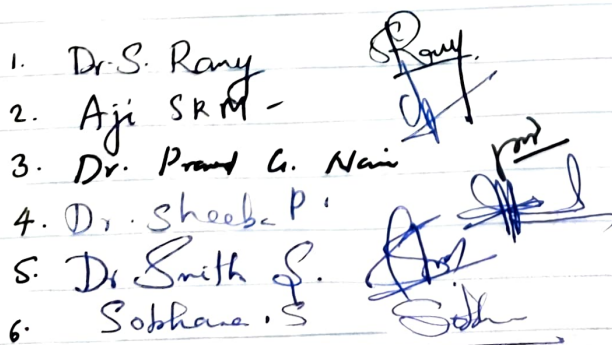 1. Dr. S. Rany SRany.
2. Aji SRM -
3. Dr. Pramod G. Nair
4. Dr. Sheeba P.
5. Dr Smitha S.
6. Sobhana . S